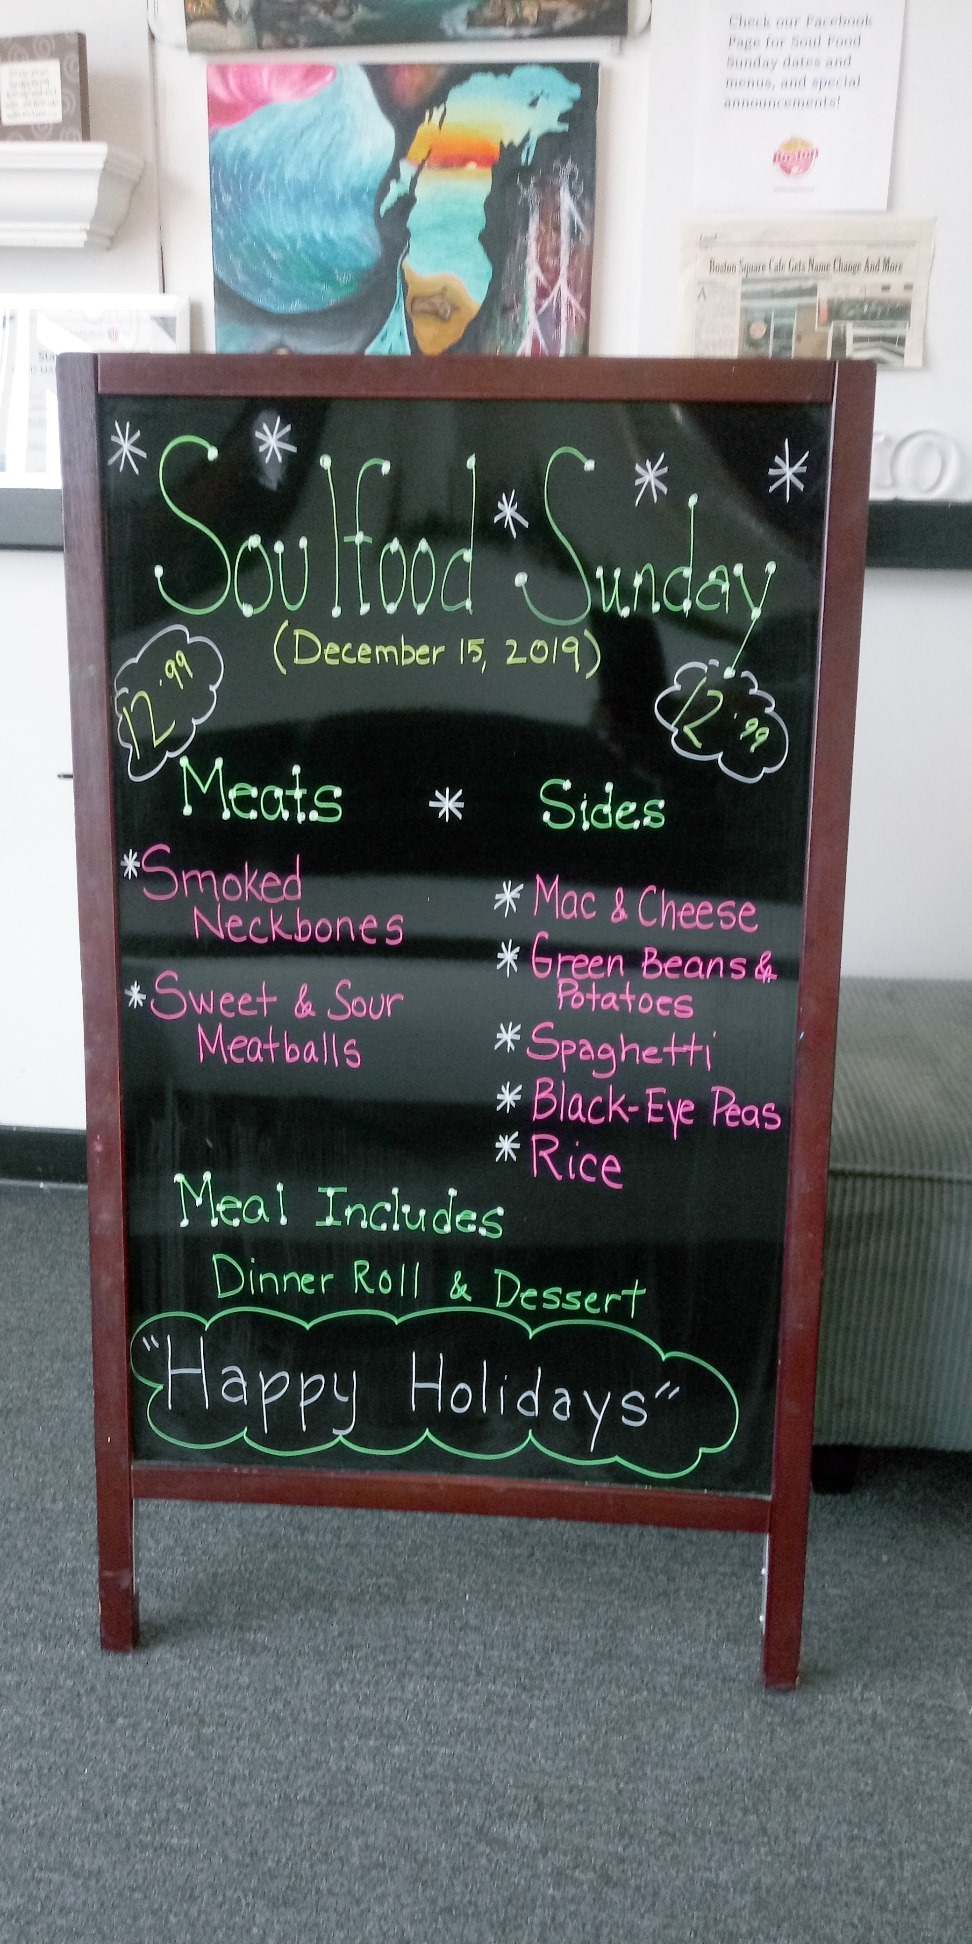 Check our Facebook
Page for Soul Food
Sunday dates and
menus, and special
announcements!
Boston
Boston Square Cafe Gets Name Change And More
Soulfood Sunday
(December 15, 2019)
12.99
12.99
Meats * Sides
* Smoked
Neckbones
* Sweet & Sour
Meatballs
* Mac & Cheese
* Green Beans &
Potatoes
* Spaghetti
* Black-Eye Peas
* Rice
Meal Includes
Dinner Roll & Dessert
"Happy Holidays"